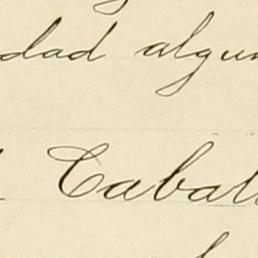 dad algun
Caball